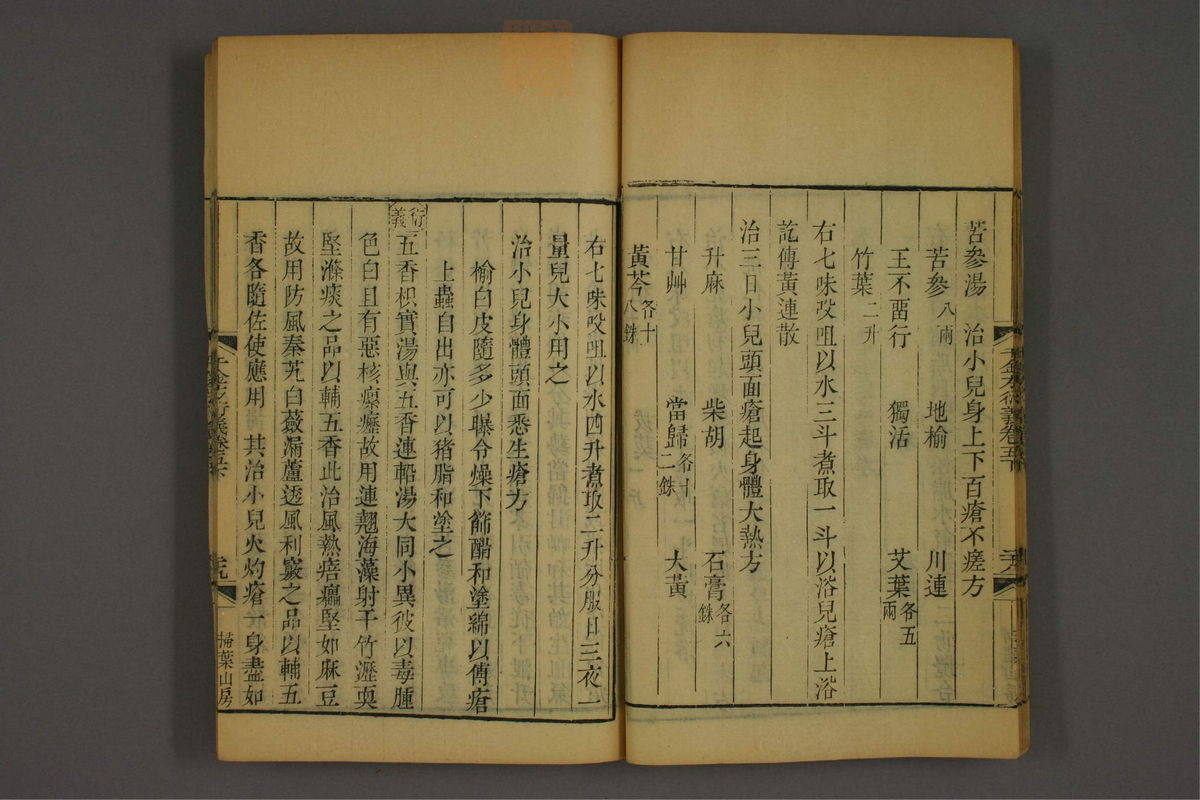 苦參湯　治小兒身上下百瘡不瘥方
苦參八兩　地榆　川連
王不畱行　獨活　艾葉各五兩
竹葉二升
右七味㕮咀以水三斗煮取一斗以浴兒瘡上浴
訖傅黃連散
治三日小兒頭面瘡起身體大熱方
升麻　柴胡　石膏各六銖
甘艸　當歸各十二銖　大黃
黃芩各十八銖
右七味㕮咀以水四升煮取二升分服日三夜一
量兒大小用之
治小兒身體頭面悉生瘡方
榆白皮隨多少曝令燥下篩醋和塗綿以傅瘡
上蟲自出亦可以猪脂和塗之
衍義
五香枳實湯與五香連軺湯大同小異彼以毒腫
色白且有惡核瘰癧故用連翹海藻射干竹瀝㮈
堅滌痰之品以輔五香此治風熱㾦㿔堅如麻豆
故用防風秦艽白蘞漏蘆透風利竅之品以輔五
香各隨佐使應用　其治小兒火灼瘡一身盡如
掃葉山房